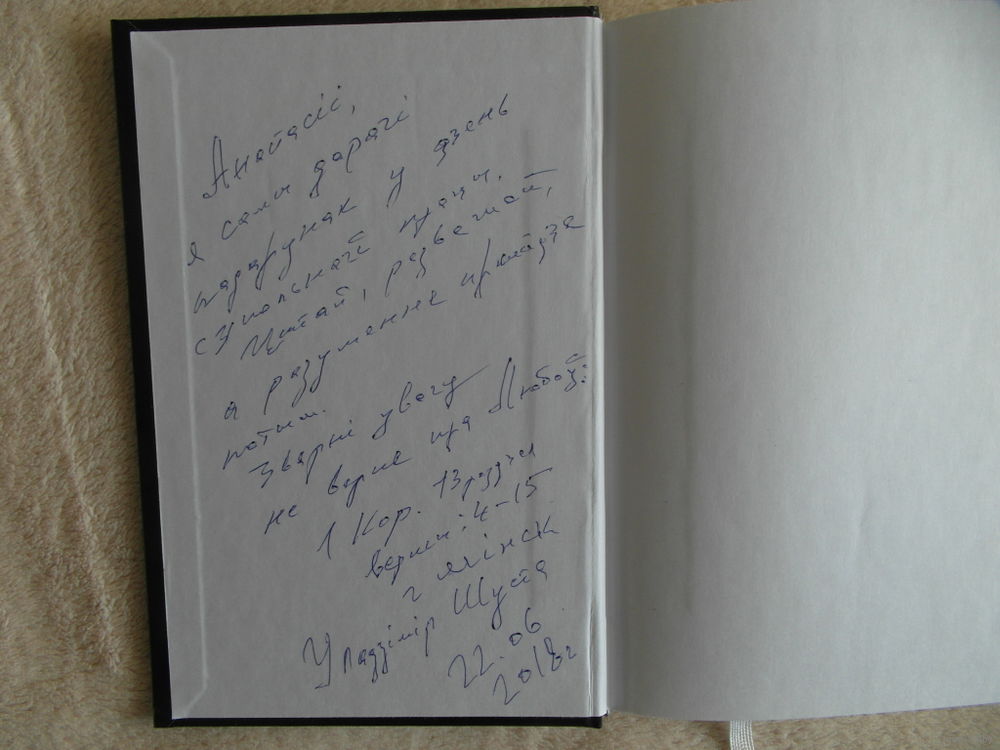 Анатасіі,
я самы дарагі
падарунак у дзень
сумольнай працы.
Чытай, разважай,
а разуменне прыйдзе
потым.
Звярні увагу
на верш пра Любоў:
1 Кор. 13 раздзел
вершы: 4-15
г Мінск
Уладзімір Шуста
22.06
2018г